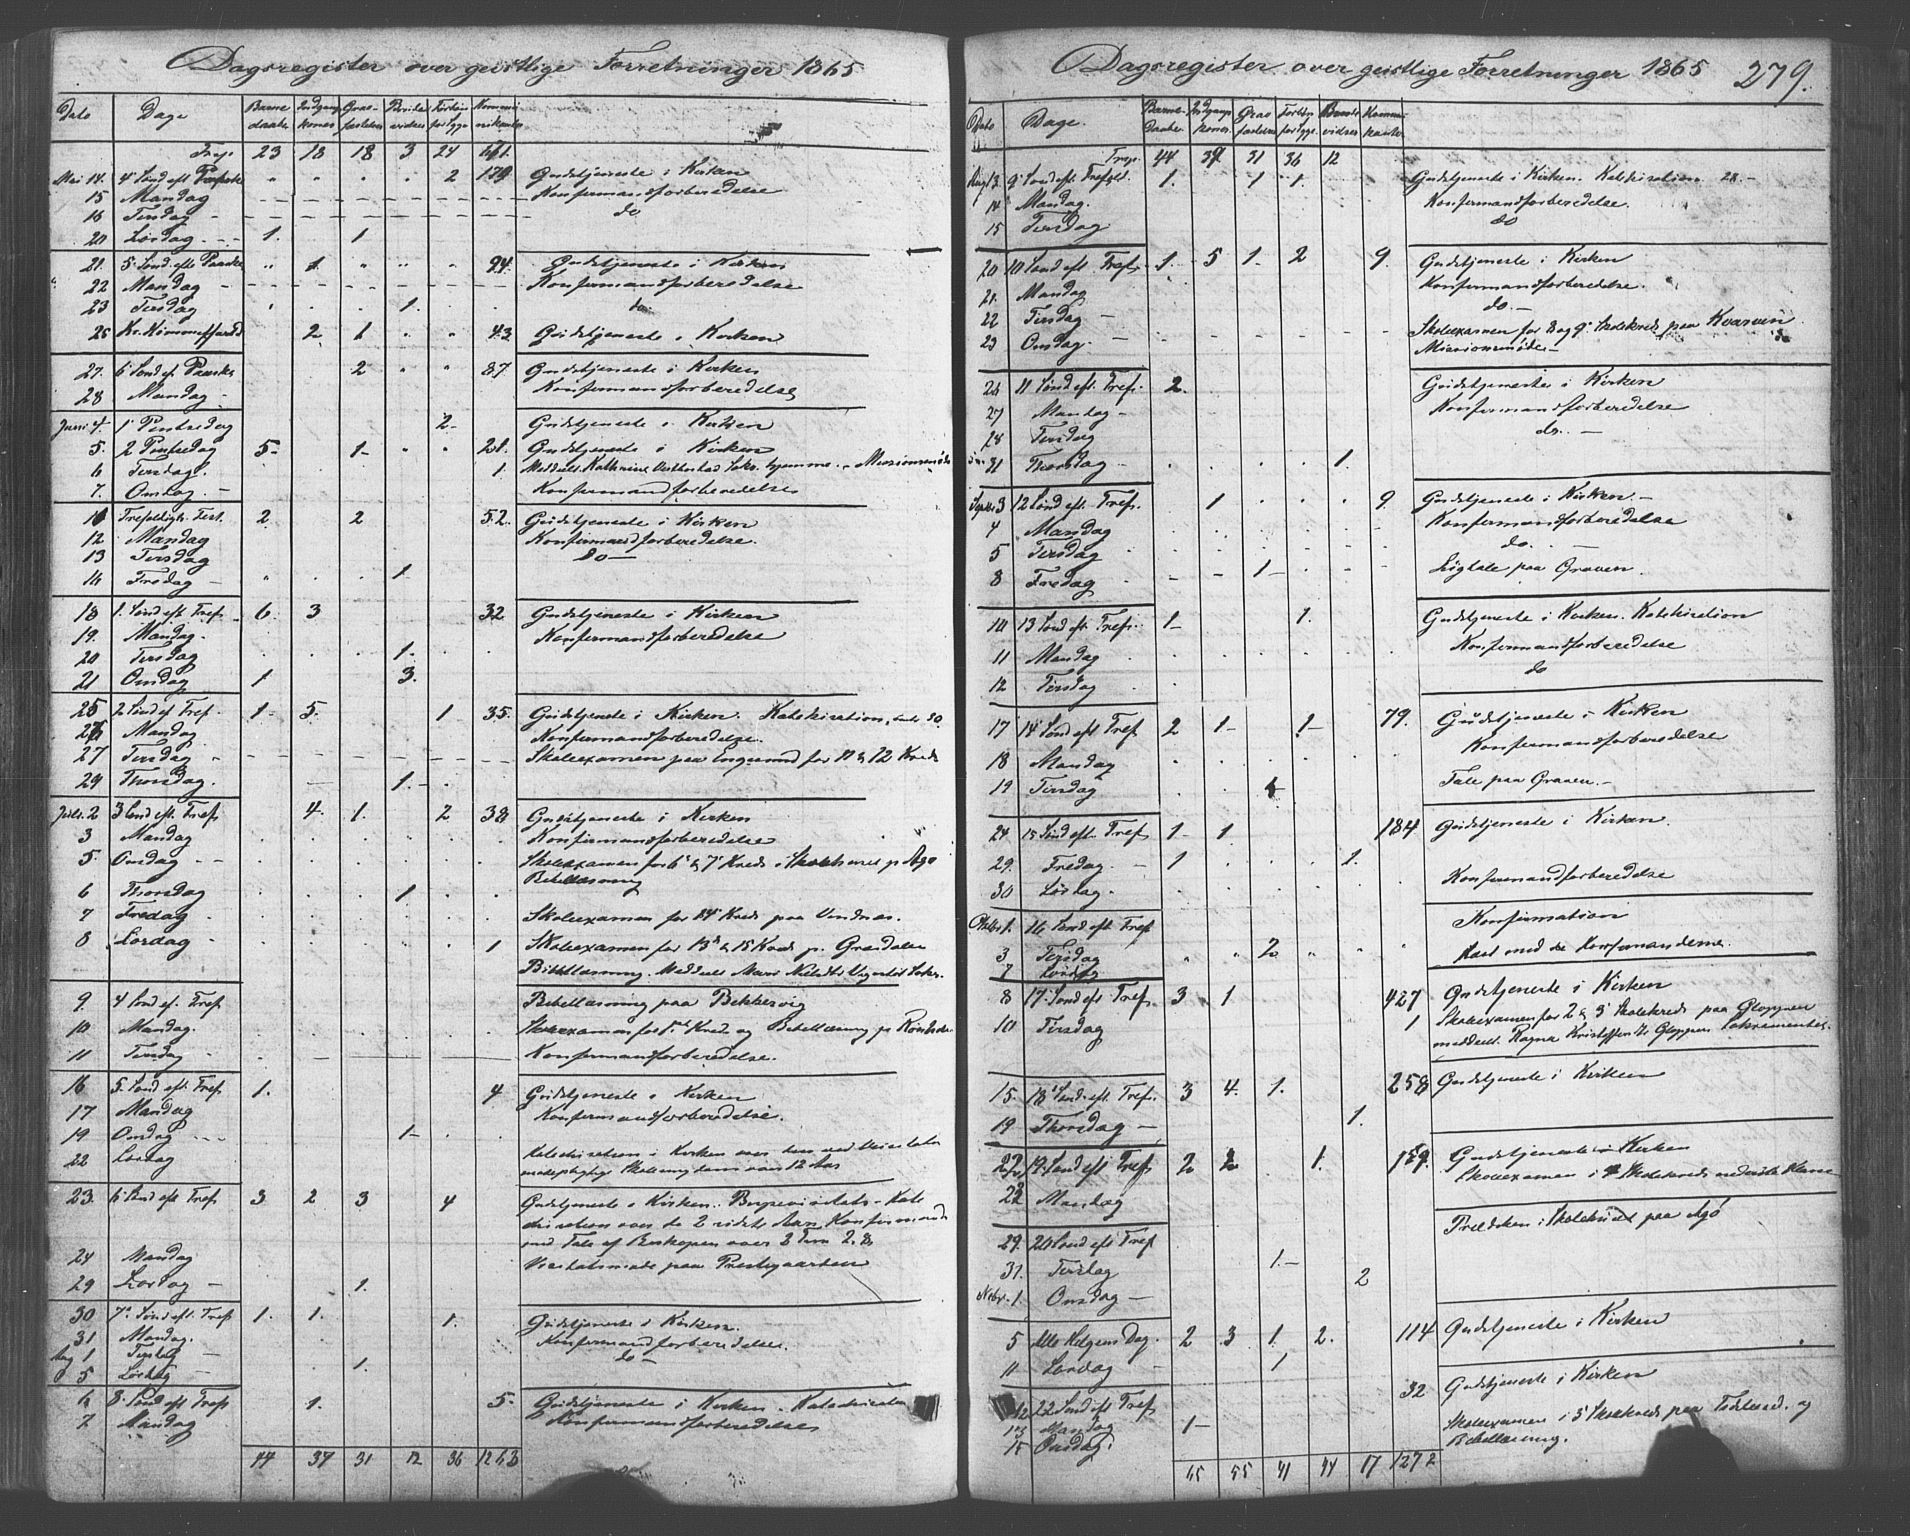 Dagsregister over geistlige Forretninger 1865
Dato Dage Barne daaber Indgangs koner Grav fæstelser Brude vidser Forbøn forbygg Kommu nikanter
Trsp. 23 18 18 3 24 661.
Mai 14. 4 Sønd eft Paaske " " " " 2 179 Gudstjeneste i Kirken
15 Mandag Konfermandforberedelse
16 Tirsdag do
20 Lørdag 1. 1.
21. 5 Sønd. eft Paaske " 1 " " " 94. Gudstjeneste i Kirken
22 Mandag Konfermandforberedelse
23 Tirsdag 1. do
25 Kr. Himmelfartsd 2 1 43 Gudstjeneste i Kirken
27. 6 Sønd ef. Paaske 2 87 Gudstjeneste i Kirken
28 Mandag Konfermandforberedelse
Juni 4. 1 Pintsedag 2 Gudstjeneste i Kirken
5. 2 Pintsedag 5 1 21. Gudstjeneste i Kirken
6 Tirsdag 1. Meddeelt Kathrine Sakr. hjemme. Missionsmøde
7. Onsdag Konfermandforberedelse
11 Trefoldigh. Fest. 2 2 52. Gudstjeneste i Kirken
12 Mandag Konfermandforberedelse.
13 Tirsdag do
16 Fredag 1
18 1. Sønd eft. Tref. 6. 3 32. Gudstjeneste i Kirken
19. Mandag. Konfermandforberedelse
20 Tirsdag 1.
21 Onsdag 1 3.
25 2 Sønd ef Tref. 1 5. 1 35. Gudstjeneste i Kirken. Katekisation,
26 Mandag Konfermandforberedelse.
27 Tirsdag Skoleexamen paa for 11 & 12 Kreds
29 Thorsdag. 1.
Juli 2 3 Sønd eft. Tref 4. 1. 2 38 Gudstjeneste i Kirken
3 Mandag Konfermandforberedelse
5. Onsdag Skoleexamen for 6 & 7 Kreds i p. Agø
Bibellæsning
6 Thorsdag 1
7 Fredag Skoleexamen for 14 Kreds paa Vindnæs.
8 Lordag 1 Skoleexamen for 13 & 15 Kreds p.
Bibellæsning. Meddeelt Sakr.
9 4 Sønd ef. Tref Bibellæsning paa Bekkervig
10 Mandag. Skoleexamen for Kreds og Bibellæsning p.
11 Tirsdag Konfermandforberedelse.
16 5. Sønd eft. Tref 1. 4 Gudstjeneste i Kirken
17 Mandag Konfermandforberedelse.
19 Onsdag 1
22 Lordag Katechisation i Kirken over den ved Visitats
mødepligtige Skoleungdom over 12 Aar
23. 6 Sønd eft Tref 3 2 3 4 Gudstjeneste i Kirken. Bispevisitats. Kate
chisation over de 2 sidste Aars Konfermander
med Tale af Biskopen over 2 Tim 2. 8
24 Mandag Visitatsmøde paa Prestegaarden
29 Lordag 1.
30 7 Sønd eft. Tref 1. 1. 1. Gudstjeneste i Kirken.
31 Mandag. Konfermandforberedelse.
Aug 1 Tirsdag do
5 Lordag 1.
6 8. Sønd eft Tref 1. 5. Gudstjeneste i Kirken. Katechisation
7 Mandag Konfermandforberedelse
44 37 31 12 36 1263
Dagsregister over geistlige Forretninger 1865 279.
Dato Dage. Barne- Daaber. Indgangs koner. Grav fæstelser Forbøn forbygg. Brude vidser Kommu kanter
Trsp. 44 37. 31 36 12
Aug 13. 9 Sønd eft Trefold. 1. 1 1. Gudstjeneste i Kirken. Katekisation
14 Mandag. Konfermandforberedelse.
15 Tirsdag do
20 10 Sønd eft Tref. 1. 5 1. 2 9. Gudstjeneste i Kirken
21. Mandag Konfermandforberedelse.
22 Tirsdag do
23 Onsdag. Skoleexamen for 8 og 9 Skolekreds paa Kvarven
Missionsmøde
26 11 Sønd eft. Tref. 2. Gudstjeneste i Kirken
27 Mandag Konfermandforberedelse
28 Tirsdag do.
31 Thorsdag 1.
Septbr 3 12 Sønd eft. Tref. 1 9. Gudstjeneste i Kirken.
4 Mandag Konfermandforberedelse
5 Tirsdag do.
8 Fredag 1 Ligtale paa Graven.
10 13 Sønd eft. Tref. 1 1. Gudstjeneste i Kirken. Katekisation
11 Mandag Konfermandforberedelse
12 Tirsdag do
17 14 Sønd eft Tref 2 1 1 79. Gudstjeneste i Kirken
18 Mandag Konfermandforberedelse
19 Tirsdag 1 Tale paa Graven.
24. 15 Sønd eft. Tref 1 1 184 Gudstjeneste i Kirken.
29. Fredag 1 1.
30 Lørdag. Konfermandforberedelse
Oktbr 1. 16 Sønd eft Tref Konfirmation
3 Tirsdag 2 med de Konfermanderne.
7 Lordag
8 17. Sønd eft Tref. 3 1 427 Gudstjeneste i Kirken
10 Tirsdag 1 Skoleexamen for 2 & 3 Skolekreds paa Gloppen
meddeelt Ragna Gloppen Sakramentet.
15. 18 Sønd. eft Tref. 3 4. 1. 258 Gudstjeneste i Kirken
19 Thorsdag 1.
22 19. Sønd eft Tref 2 2 1. 159. Gudstjeneste i Kirken
23 Mandag Skoleexamen i 4 Skolekreds nederste Klasse
Skolekreds paa Agø
29. 20 Sønd eft Tref
31. Tirsdag 1.
Novbr. 1 Onsdag 2
5 Alle Helgens Dag. 2 3 1. 2. 114 Gudstjeneste i Kirken
11 Lordag 1
12 22 Sønd eft Tref 32 Gudstjeneste i Kirken
13 Mandag 1 Skoleexamen i 5 Skolekreds paa og
15 Onsdag. Bibellæsning.
65 55 41 44 17 1272